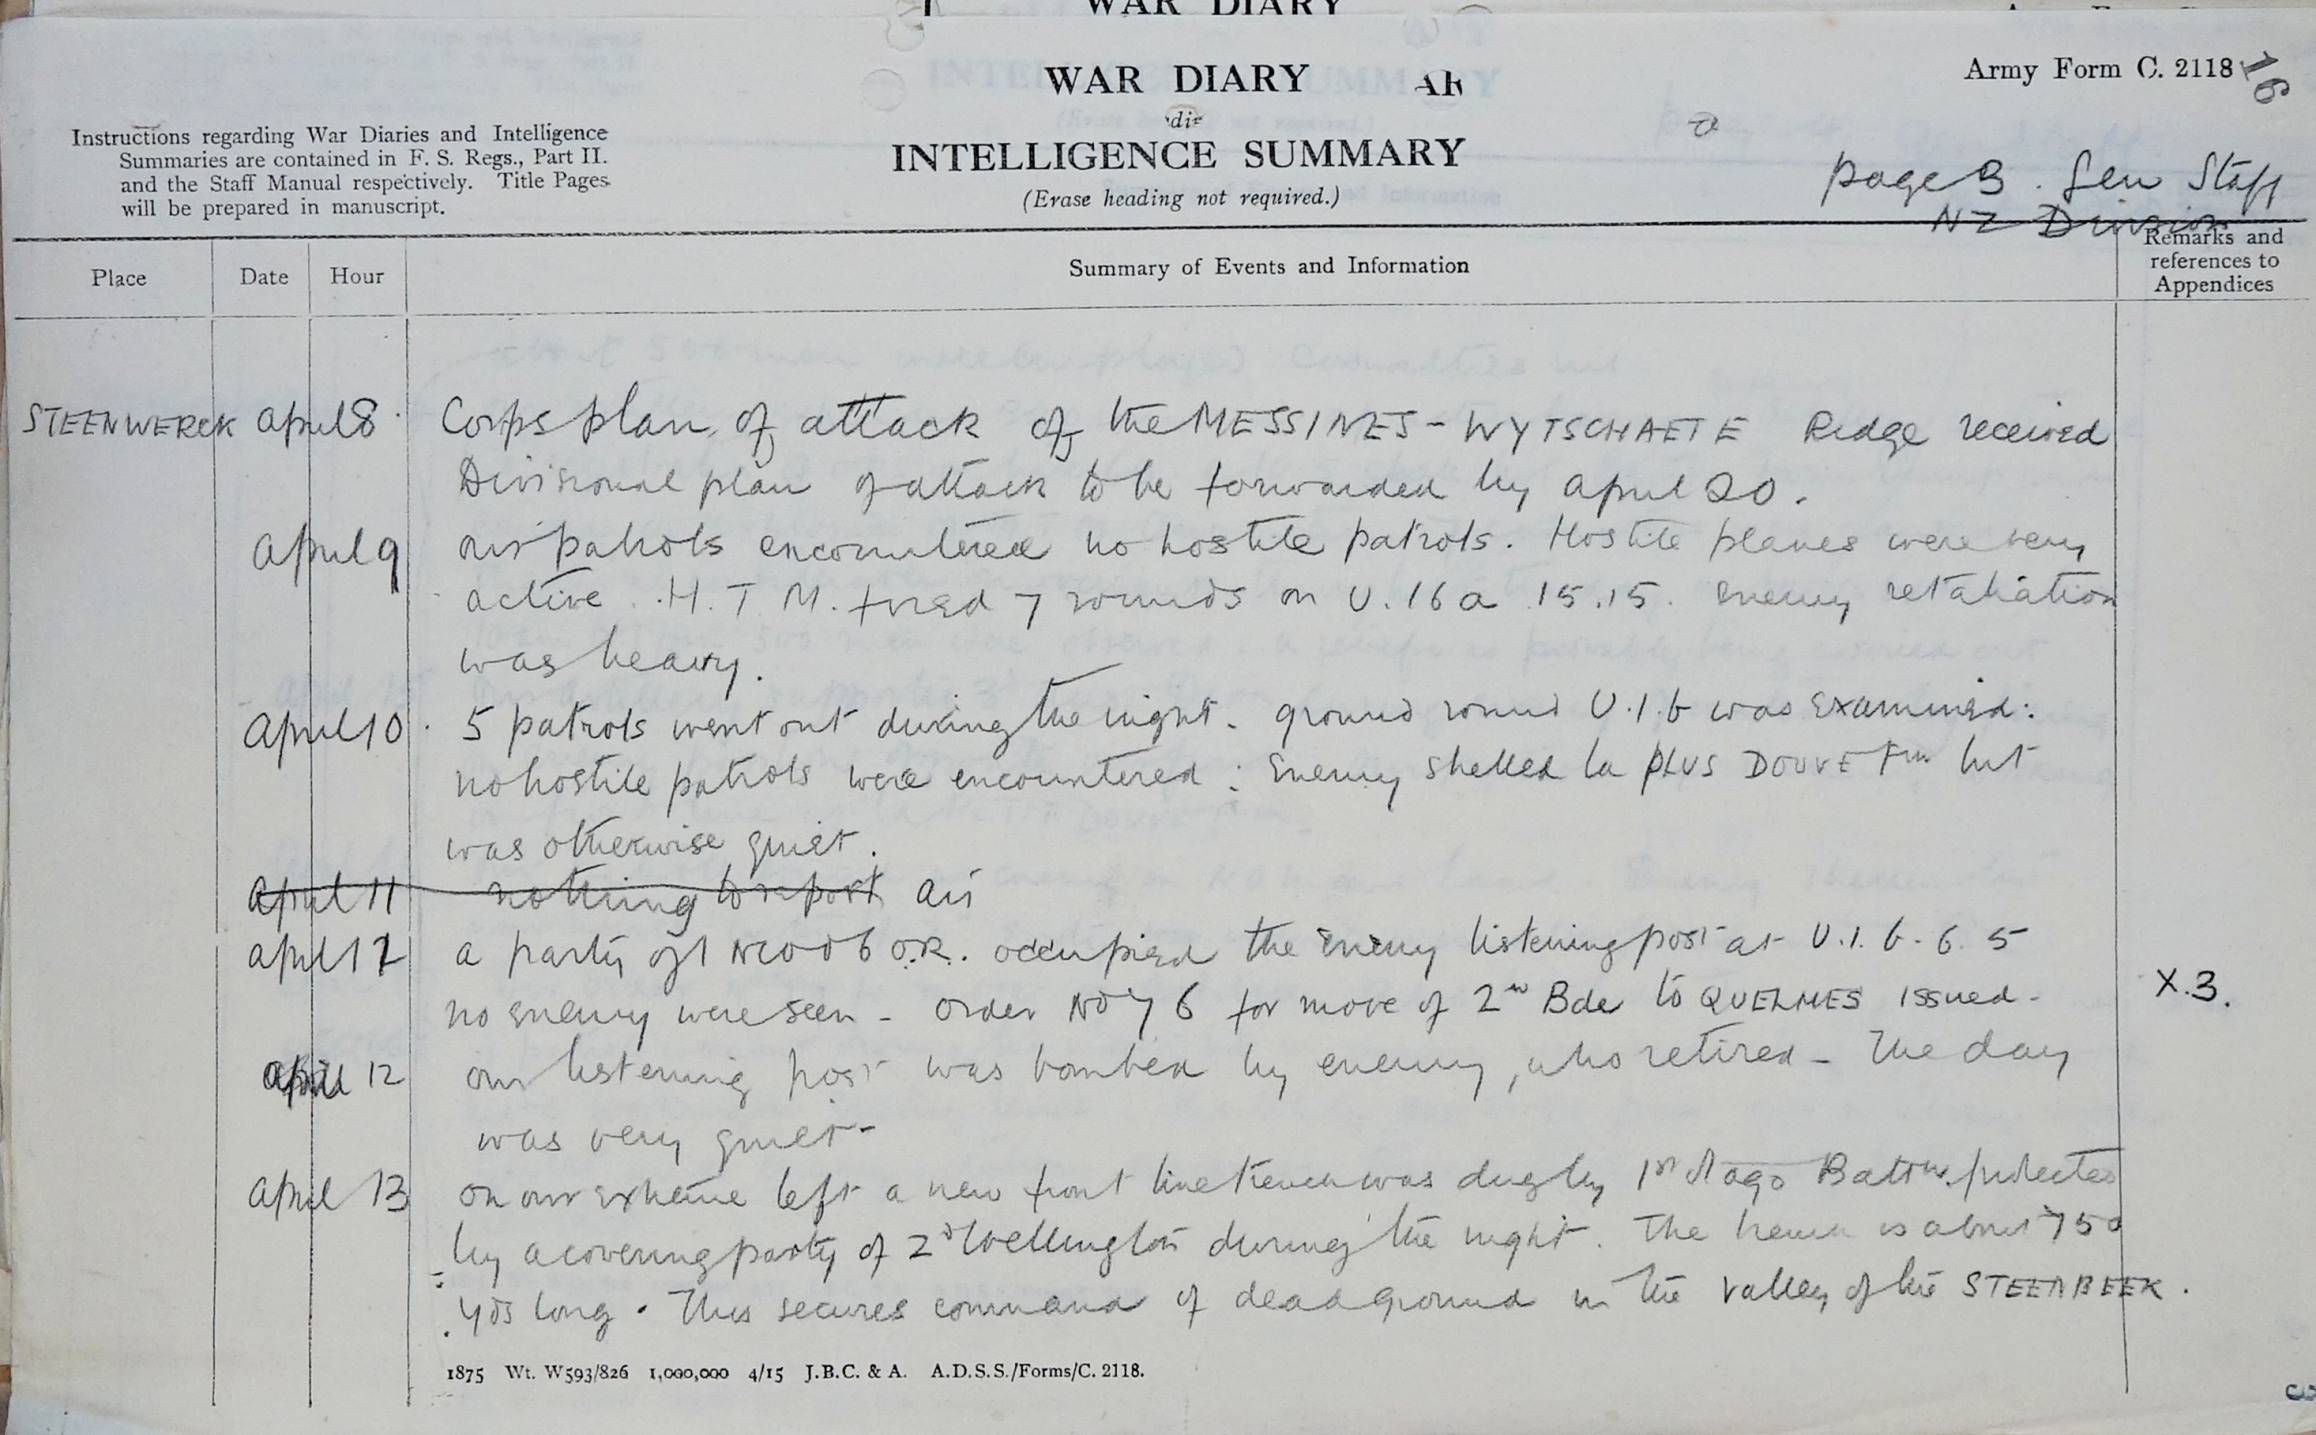 WAR DIARY
WAR DIARY
Army Form C. 2118
16
INTELLIGENCE SUMMARY
(Erase heading not required.)
Instructions regarding War Diaries and Intelligence
Summaries are contained in F. S. Regs., Part II.
and the Staff Manual respectively. Title Pages
will be prepared in manuscript.
page 3. Gen Staff
NZ Division
Place Date Hour Summary of Events and Information Remarks and references to Appendices
STEENWERCK April 8. Corps plan of attack of the MESSINES - WYTSCHAETE Ridge received
Divisional plan of attack to be forwarded by April 20.
April 9 our patrols encountered no hostile patrols. Hostile planes were very
active. H.T.M. fired 7 rounds on U.16a 15.15. Enemy retaliation
was heavy.
April 10. 5 patrols went out during the night. ground round U.1.b was examined:
no hostile patrols were encountered: Enemy shelled la PLUS DOUVE Fm but
was otherwise quiet.
April 11 nothing to report
April 11 a party of 1 NCO & 6 O.R. occupied the enemy listening post at U.1.b.6.5
no enemy were seen - Order No 76 for move of 2nd Bde to QUELMES issued - X.3.
April 12 our listening post was bombed by enemy, who retired - The day
was very quiet -
April 13 on our extreme left a new front line trench was dug by 1st Otago Battn. protected
by a covering party of 2d Wellington during the night. The trench is about 750
yds long. This secures command of dead ground in the valley of the STEENBEEK.
1875 Wt. W593/826 1,000,000 4/15 J.B.C. & A. A.D.S.S./Forms/C. 2118.
3